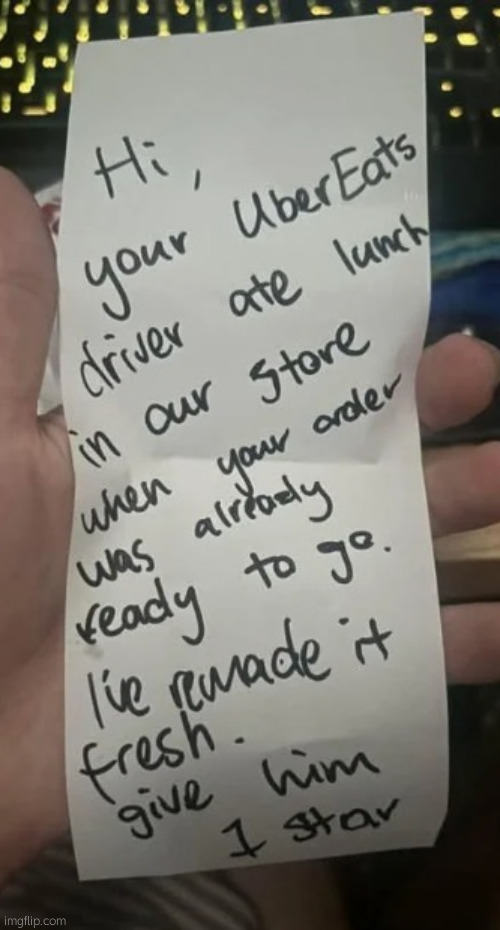 Hi,
your UberEats
driver ate lunch
in our store
when your order
was already
ready to go.
I've remade it
fresh.
give him
1 star
imgflip.com